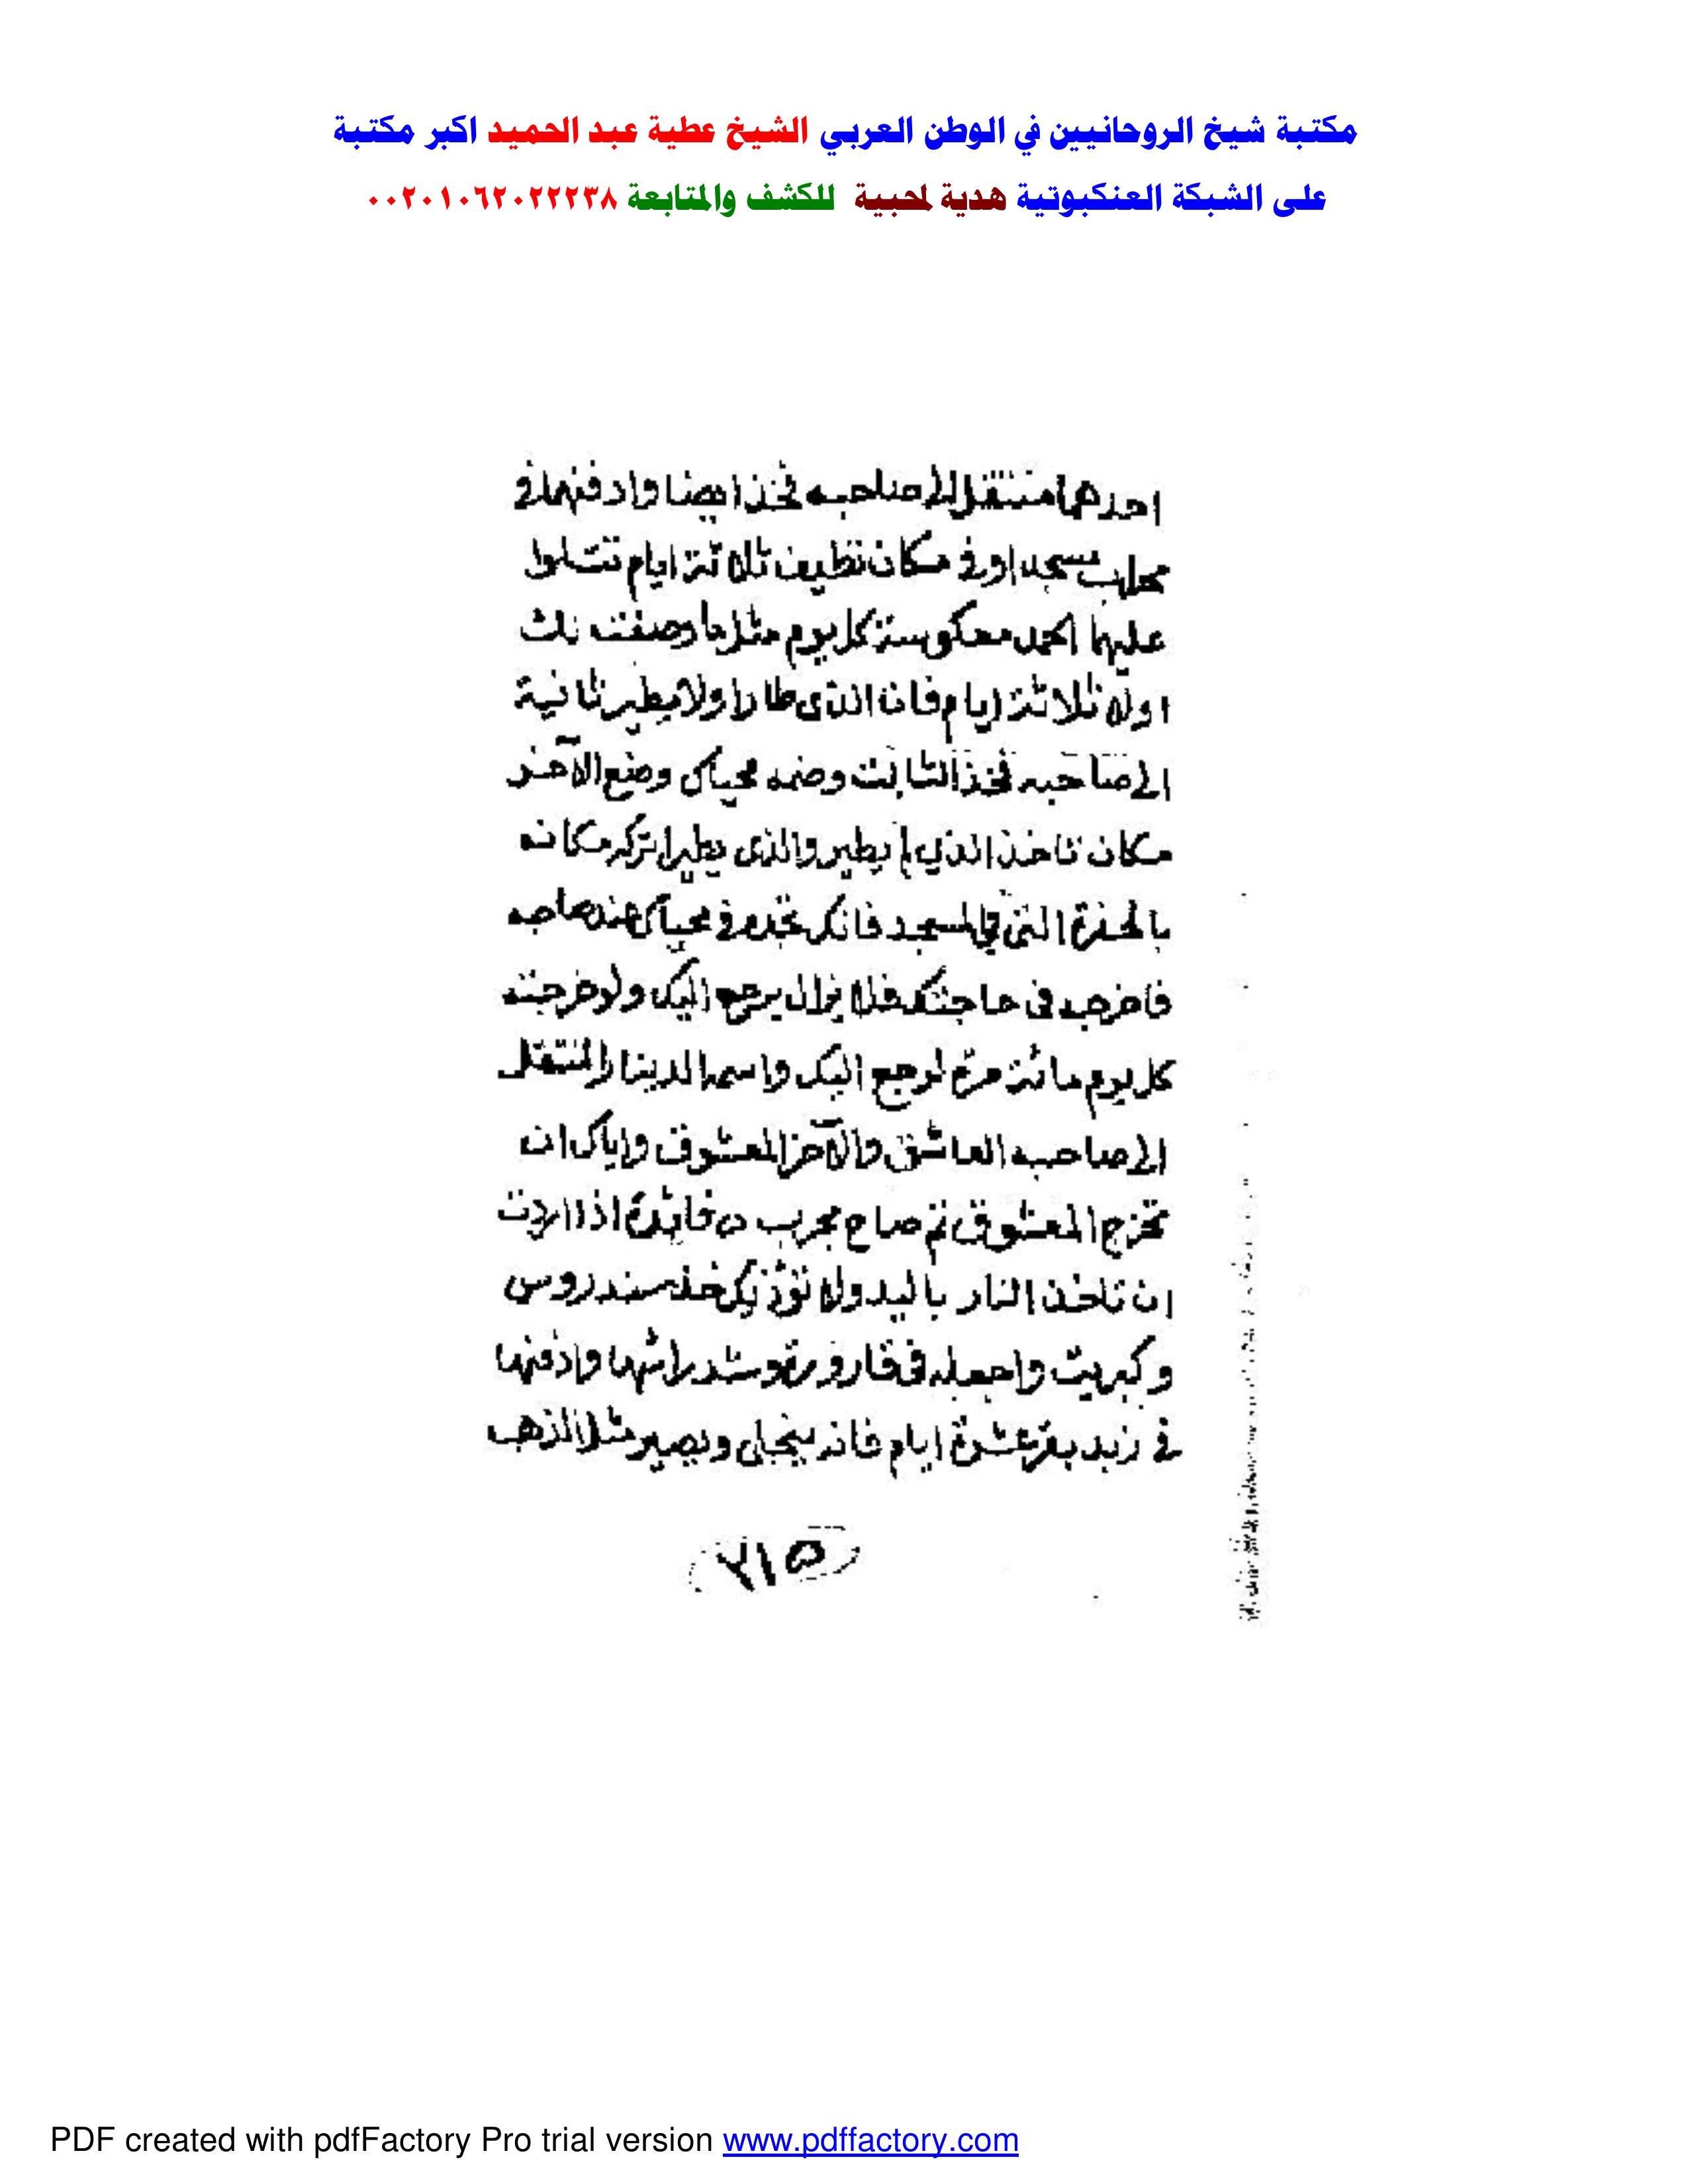 مكتبة شيخ الروحانيين في الوطن العربي الشيخ عطية عبد الحميد اكبر مكتبة
على الشبكة العنكبوتية هدية لمحبية للكشف والمتابعة ٠٠٢٠١٠٦٢٠٢٢٢٣٨
احدهما منتقل الى صاحبه فخذ ايضا وادفنهما في
محراب مسجد او في مكان نظيف ثلاثة ايام تتلوا
عليها الحمد معكوسة كل يوم مثل ما وصفت لك
اولا ثلاثة ايام فان الذى طار اولا يطير ثانية
الى صاحبه فخذ الثابت وضعه محياك وضع الآخر
مكان تاخذ الذي لم يطير والذى يطير اتركه مكانه
بالحفرة التى في المسجد فانك تجده في محياك عند صاحبه
فاخرجه فى حاجتك فلا يزال يرجع اليك ولو خرجته
كل يوم مائة مرة لرجع اليك واسم الدينار المنتقل
الى صاحبه العاشق والآخر المعشوق واياك ان
تخرج المعشوق تم صاح مجرب فايدة اذا اردت
ان تاخذ النار باليد ولا تؤذيك خذ سندروس
وكبريت واجعله فى قارورة وشد راسها وادفنها
في زبد بقر عشرة ايام فانه ينحل ويصير مثل الذهب
٣١٥
PDF created with pdfFactory Pro trial version www.pdffactory.com